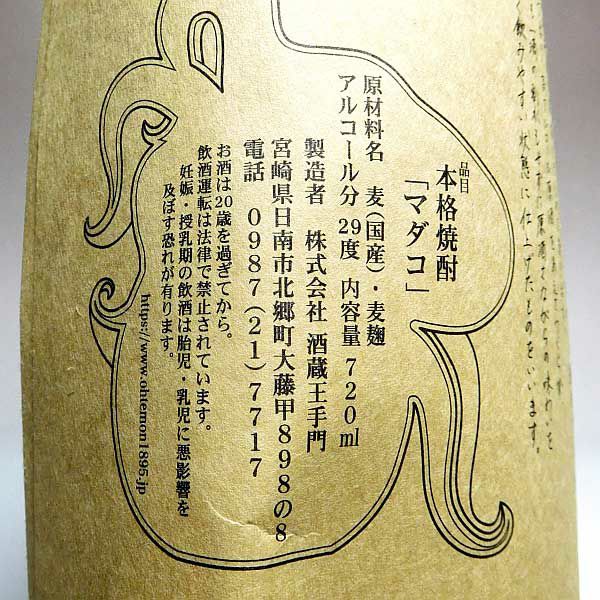 く飲みやすい状態に仕上げたものをいいます。
品目
本格焼酎
「マダコ」
原材料名 麦(国産)・麦麹
アルコール分 29度 内容量 720ml
製造者 株式会社 酒蔵王手門
宮崎県日南市北郷町大藤甲898の8
電話 0987(21)7717
お酒は20歳を過ぎてから。
飲酒運転は法律で禁止されています。
妊娠・授乳期の飲酒は胎児・乳児に悪影響を
及ぼす恐れが有ります。
https://www.ohtemon1895.jp